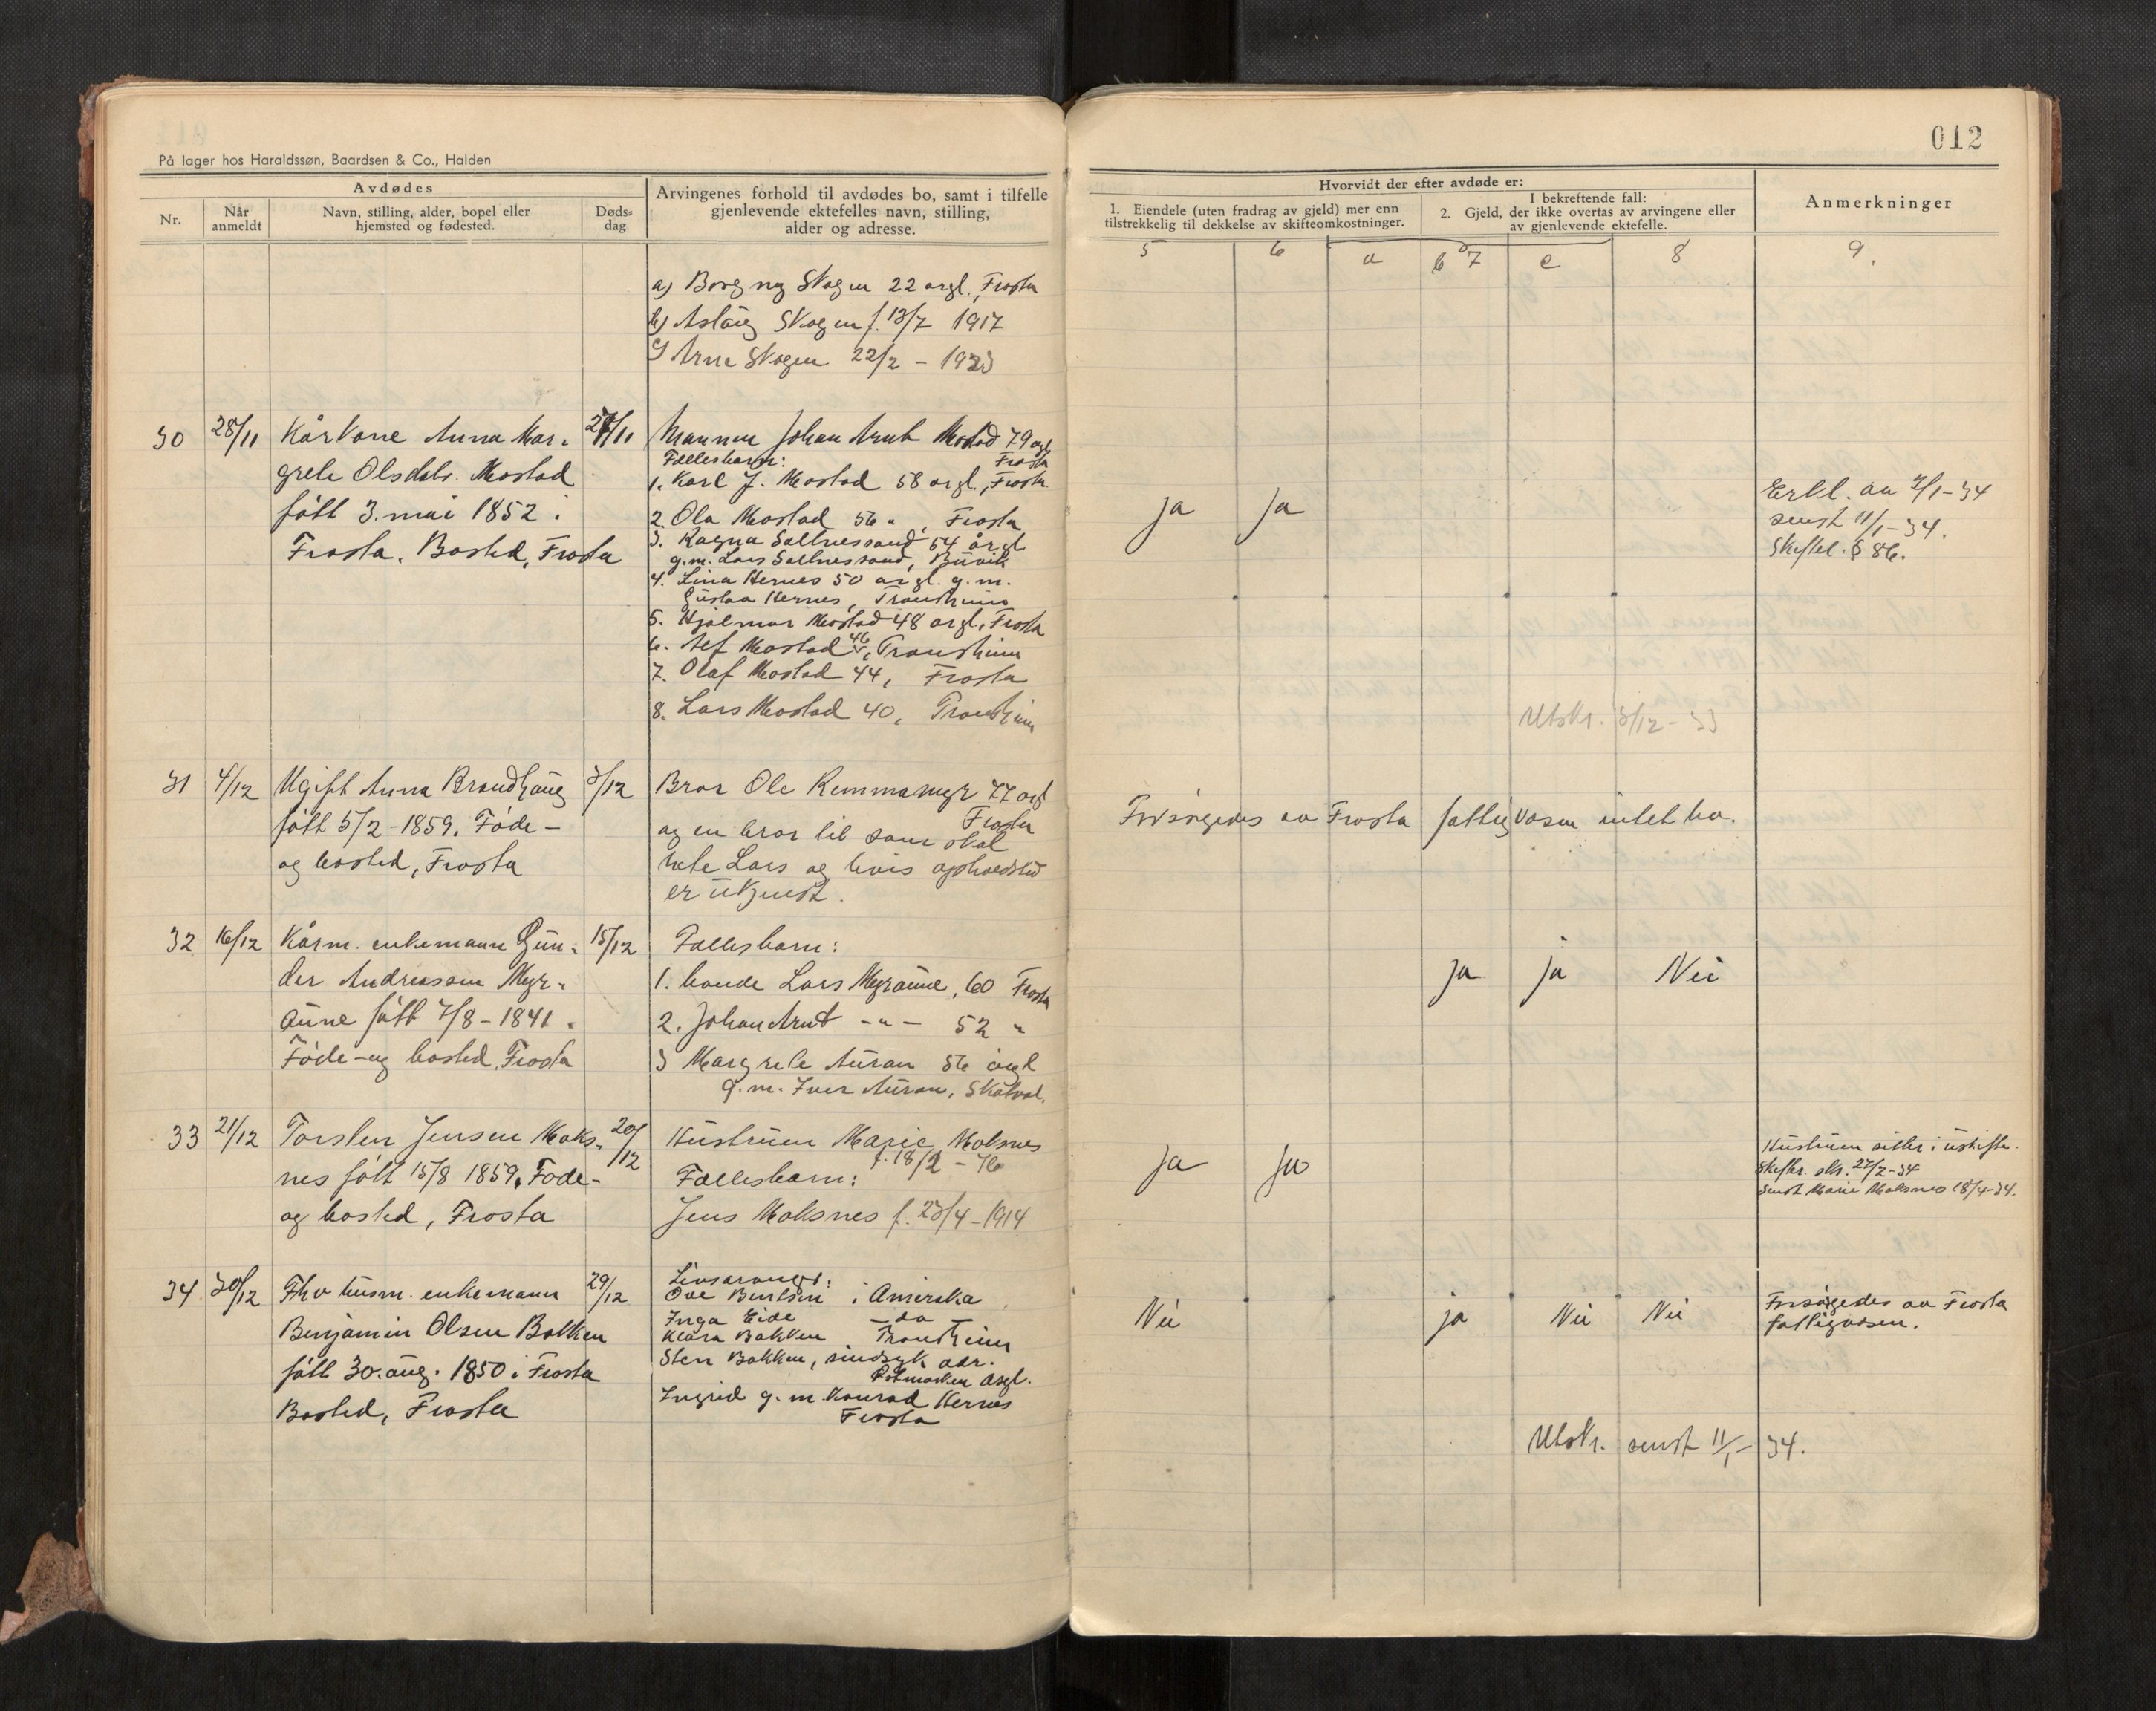 012
På lager hos Haraldssøn, Baardsen & Co., Halden
Avdødes
Nr.
Når
anmeldt
Navn, stilling, alder, bopel eller
hjemsted og fødested.
Døds-
dag
Arvingenes forhold til avdødes bo, samt i tilfelle
gjenlevende ektefelles navn, stilling,
alder og adresse.
Hvorvidt der efter avdøde er:
1. Eiendele (uten fradrag av gjeld) mer enn
tilstrekkelig til dekkelse av skifteomkostninger.
I bekreftende fall:
2. Gjeld, der ikke overtas av arvingene eller
av gjenlevende ektefelle.
Anmerkninger
5 6 a b 7 c 8 9.
a) Borgny Skogen 22 årgl., Frosta
b) Aslaug Skogen f. 13/7 1917
c) Arne Skogen 22/2 - 1923
30 28/11 Kårkone Anna Mar-
grete Olsdatr. Mostad
født 3. mai 1852 i
Frosta. Bosted, Frosta
27/11
Mannen Johan Arnt Mostad 79 årgl
Frosta
Fællesbarn:
1. Karl J. Mostad 58 årgl., Frosta
2. Ola Mostad 56 " , Frosta
3. Ragna Saltnessand 54 årgl
g.m. Lars Saltnessand, Buvik
4. Lina Hernes 50 årgl. g.m.
Gustav Hernes, Trondheim
5. Hjalmar Mostad 48 årgl., Frosta
6. Alf Mostad 46, Trondheim
7. Olaf Mostad 44, Frosta
8. Lars Mostad 40, Trondheim
ja ja
Erkl. av 2/1-34
sendt 11/1-34.
Skiftel. § 86.
Utskr. 3/12-33
31 4/12 Ugift Anna Brandhaug
født 5/2-1859. Føde-
og bosted, Frosta
3/12
Bror Ole Remmamyr 77 årgl
Frosta
og en bror til som skal
hete Lars og hvis opholdssted
er ukjendt.
Forsørgedes av Frosta fattigvesen intet bo.
32 16/12 Kårm. enkemann Gun-
der Andreassen Myr-
aune født 7/8-1841.
Føde- og bosted, Frosta
15/12
Fællesbarn:
1. bonde Lars Myraune, 60 Frosta
2. Johan Arnt -"- 52 "
3 Margrete Auran 56 årgl
g.m. Iver Auran, Skatval.
ja ja Nei
33 21/12 Torsten Jensen Moks-
nes født 15/8 1859. Føde-
og bosted, Frosta
20/12
Hustruen Marie Moksnes
f. 18/2-76
Fællesbarn:
Jens Moksnes f. 23/4-1914
ja ja
Hustruen sitter i uskifte.
Skiftr. skr. 27/2-34
sendt Marie Moksnes 18/4-34.
34 30/12 Fhv husm. enkemann
Benjamin Olsen Bakken
født 30. aug. 1850 i Frosta
Bosted, Frosta
29/12
Livsarvinger:
Ove Bentsen i Amerika
Inga Eide - do -
Klara Bakken Trondheim
Sten Bakken, sindsyk adr.
Rotmoken asyl.
Ingrid g.m. Konrad Hernes
Frosta
Nei ja Nei Nei
Forsørgedes av Frosta
fattigvesen.
Utskr. sendt 11/1-34.